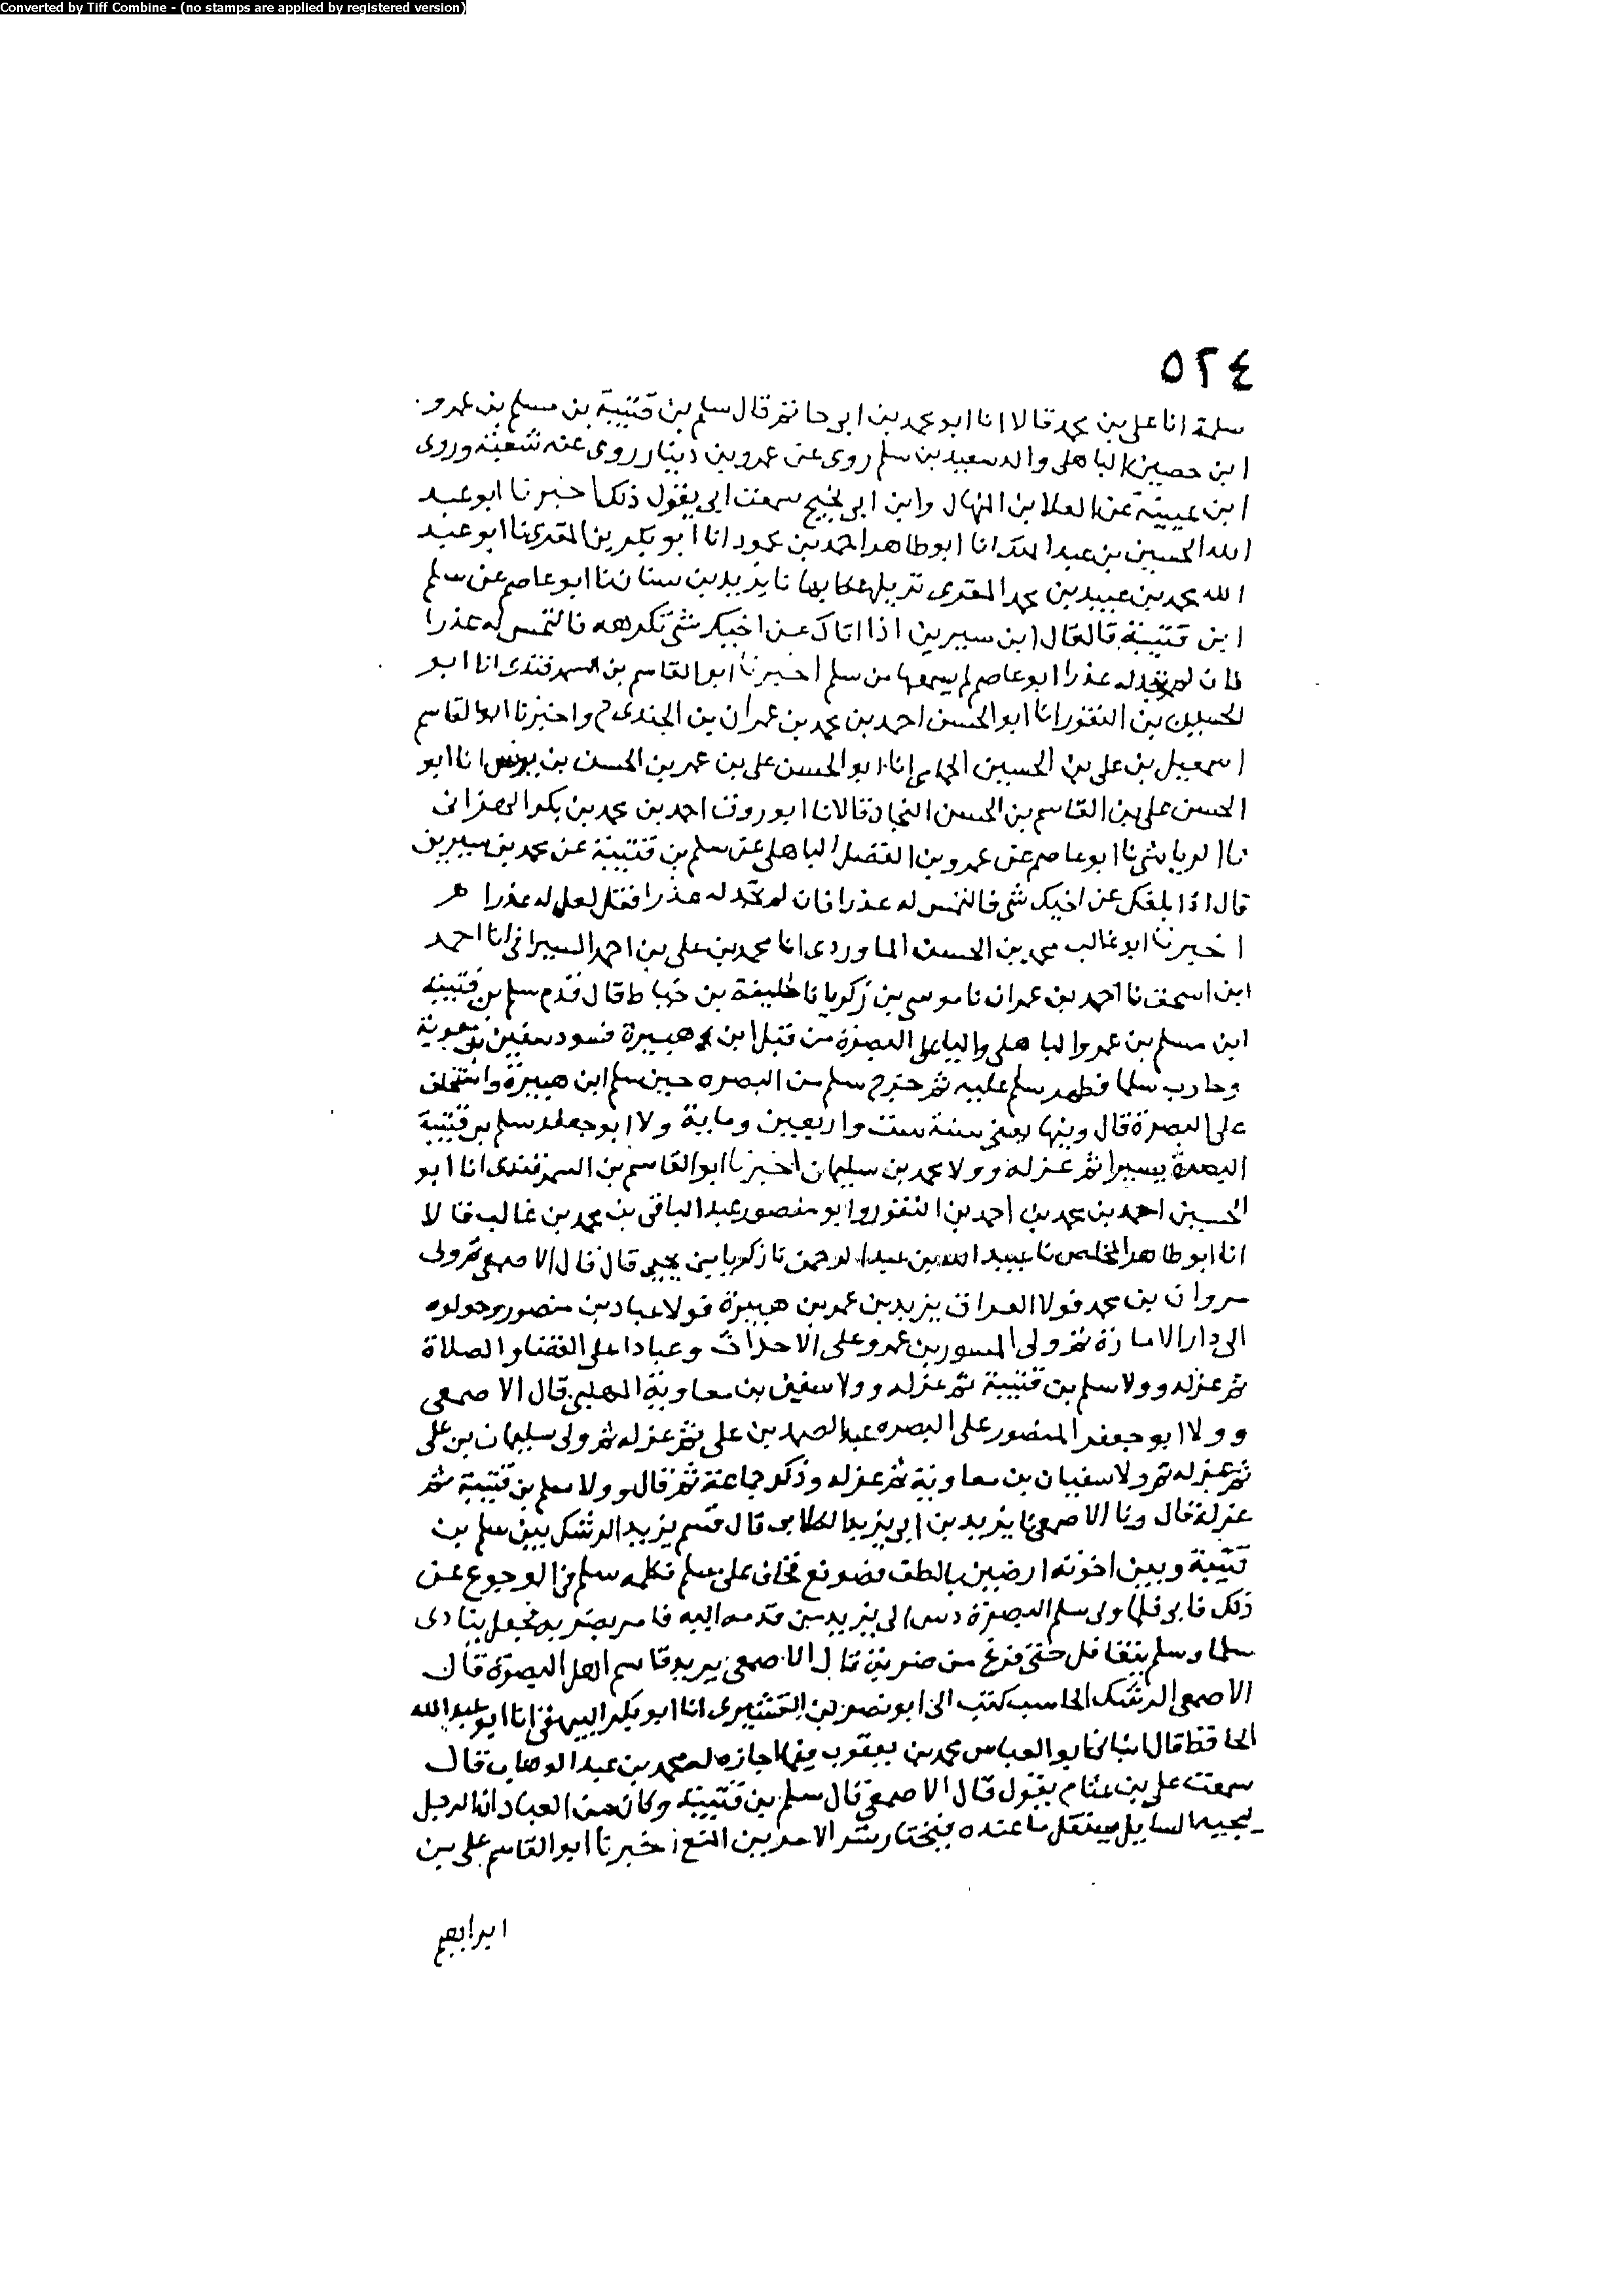 Converted by Tiff Combine - (no stamps are applied by registered version)
٥٢٤
سلمة انا على بن محمد قالا انا ابو محمد بن ابى حاتم قال سلم بن قتيبة بن مسلم بن عمرو
ابن حصين الباهلى والد سعيد بن سلم روى عن عمرو بن دينار روى عنه شعبة وروى
ابن عيينة عن العلا بن المنهال وابن ابى نجيح سمعت ابى يقول ذلك اخبرنا ابو عبد
الله الحسين بن عبد الملك انا ابو طاهر احمد بن محمود انا ابو بكر بن المقرى نا ابو عبد
الله محمد بن عبيد بن محمد المقرى نزيل عكا بها نا يزيد بن سنان نا ابو عاصم عن سلم
ابن قتيبة قال قال ابن سيرين اذا اتاك عن اخيك شى تكرهه فالتمس له عذرا
فان لم تجد له عذرا ابو عاصم لم يسمعها من سلم اخبرنا ابو القاسم بن السمرقندى انا ابو
الحسين بن النقور انا ابو الحسن احمد بن محمد بن عمران بن الجندى ح واخبرنا ابو القاسم
اسمعيل بن على بن الحسين الحمامى انا ابو الحسن على بن عمر بن الحسن بن يونس انا ابو
الحسن على بن القاسم بن الحسن النجاد قالا نا ابو روق احمد بن محمد بن بكر الهزانى
نا الرياشى نا ابو عاصم عن عمرو بن الفضل الباهلى عن سلم بن قتيبة عن محمد بن سيرين
قال اذا بلغك عن اخيك شى فالتمس له عذرا فان لم تجد له عذرا فقل لعل له عذرا هـ
اخبرنا ابو غالب محمد بن الحسن الماوردى انا محمد بن على بن احمد السيرافى انا احمد
ابن اسحق نا احمد بن عمران نا موسى بن زكريا نا خليفة بن خياط قال قدم سلم بن قتيبة
ابن مسلم بن عمرو الباهلى واليا على البصرة من قبل ابن هبيرة فسود سفين بن معوية
وحارب سلما فظهر سلم عليه ثم خرج سلم من البصره حين سلم ابن هبيرة واستخلف
على البصرة قال وفيها يعنى سنة ست واربعين وماية ولا ابو جعفر سلم بن قتيبة
البصرة يسيرا ثم عزله وولا محمد بن سليمان اخبرنا ابو القاسم بن السمرقندى انا ابو
الحسين احمد بن محمد بن احمد بن النقور وابو منصور عبد الباقى بن محمد بن غالب قالا
انا ابو طاهر المخلص نا عبيد الله بن عبد الرحمن نا زكريا بن يحيى قال قال الاصمعى ثم ولى
مروان بن محمد فولا العراق يزيد بن عمر بن هبيرة فولا عباد بن منصور وحولوه
الى دار الامارة ثم ولى المسور بن عمرو على الاحداث وعبادا على القضا والصلاة
ثم عزله وولا سلم بن قتيبة ثم عزله وولا سفين بن معاوية المهلبى قال الاصمعى
وولا ابو جعفر المنصور على البصره عبد الصمد بن على ثم عزله ثم ولى سليمان بن على
ثم عزله ثم ولا سفيان بن معاوية ثم عزله وذكر جماعة ثم قال وولا سلم بن قتيبة ثم
عزله قال ونا الاصمعى نا يزيد بن ابى يزيد الكلابى قال قسم يزيد الرشك بين سلم بن
قتيبة وبين اخوته ارضين بالطف فخاف على سلم فكلمه سلم فى الرجوع عن
ذلك فابى فلما ولى سلم البصرة دس الى يزيد من قدمه اليه فامر بضربه فجعل ينادى
سلما وسلم يتغافل حتى فرغ من ضربه قال الاصمعى يزيد قاسم اهل البصرة قال
الاصمعى الرشك الحاسب كتب الى ابو نصر بن القشيرى انا ابو بكر البيهقى انا ابو عبد الله
الحافظ قال ابو العباس محمد بن يعقوب فيما اجازه له محمد بن عبد الوهاب قال
سمعت على بن عثام يقول قال الاصمعى قال سلم بن قتيبة وكان من العباد ان الرجل
ليجيه السايل ما عنده فيختار شر الامرين المنع اخبرنا ابو القاسم على بن
ابراهيم